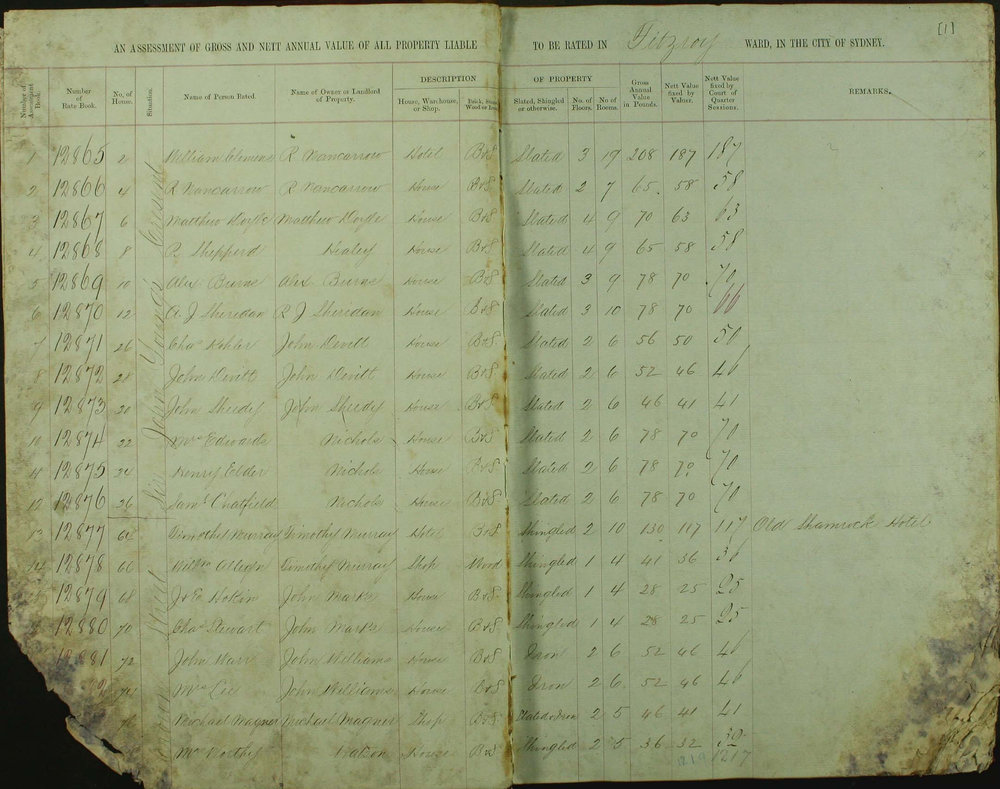 [1]
AN ASSESSMENT OF GROSS AND NETT ANNUAL VALUE OF ALL PROPERTY LIABLE TO BE RATED IN Fitzroy WARD, IN THE CITY OF SYDNEY.
DESCRIPTION OF PROPERTY
Number of Assessment Book. Number of Rate Book. No. of House. Situation. Name of Person Rated. Name of Owner or Landlord of Property. House, Warehouse, or Shop. Brick, Stone, Wood or Iron. Slated, Shingled or otherwise. No. of Floors. No of Rooms. Gross Annual Value in Pounds. Nett Value fixed by Valuer. Nett Value fixed by Court of Quarter Sessions. REMARKS.
Sir John Young's Crescent
1 12865 2 William Clemens R Nancarrow Hotel B&S Slated 3 19 208 187 187
2 12866 4 R Nancarrow R Nancarrow House B&S Slated 2 7 65 58 58
3 12867 6 Matthew Doyle Matthew Doyle House B&S Slated 4 9 70 63 63
4 12868 8 R Shepperd Healey House B&S Slated 4 9 65 58 58
5 12869 10 Alex Burne Alex Burne House B&S Slated 3 9 78 70 70
6 12870 12 R J Sheridan R J Sheridan House B&S Slated 3 10 78 70 66
7 12871 26 Chas Kohler John Devitt House B&S Slated 2 6 56 50 50
8 12872 28 John Devitt John Devitt House B&S Slated 2 6 52 46 46
9 12873 30 John Sheedy John Sheedy House B&S Slated 2 6 46 41 41
10 12874 32 Mrs Edwards Nichols House B&S Slated 2 6 78 70 70
11 12875 34 Henry Elder Nichols House B&S Slated 2 6 78 70 70
12 12876 36 Saml Chatfield Nichols House B&S Slated 2 6 78 70 70
13 12877 64 Timothy Murray Timothy Murray Hotel B&S Shingled 2 10 130 117 117 Old Shamrock Hotel
14 12878 66 Timothy Murray Shop Wood Shingled 1 4 41 36 36
12879 68 John Marks House B&S Shingled 1 4 28 25 25
12880 70 Chas Stewart John Marks House B&S Shingled 1 4 28 25 25
12881 72 John Warr John Williams House B&S Iron 2 6 52 46 46
74 Mrs Lee John Williams House B&S Iron 2 6 52 46 46
76 Michael Magner Michael Magner Shop B&S Slated & Iron 2 5 46 41 41
Watson House B&S Shingled 2 5 36 32
1219 1217
Street